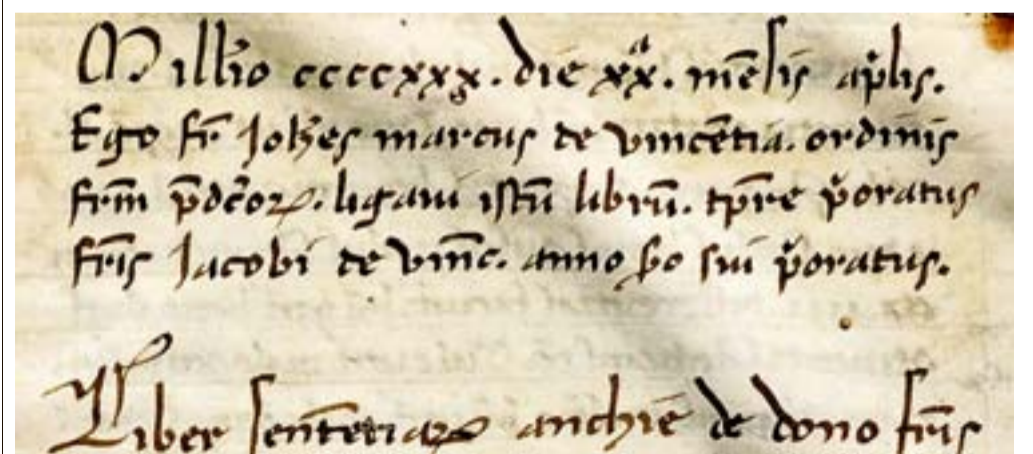 Mill̅io ccccxxx. die xxª. me̅sis ap̅lis.
Ego fr̅ Joh̅es marcus de vince̅tia. ordinis
fr̅m p̅dc̅oꝝ. ligaui istu̅ libru̅. tp̅re p̊oratus
fr̅is Jacobi de vin̅c. anno ṗo sui p̊oratus.
Liber sente̅tiaꝝ anchie̅ de dono fr̅is